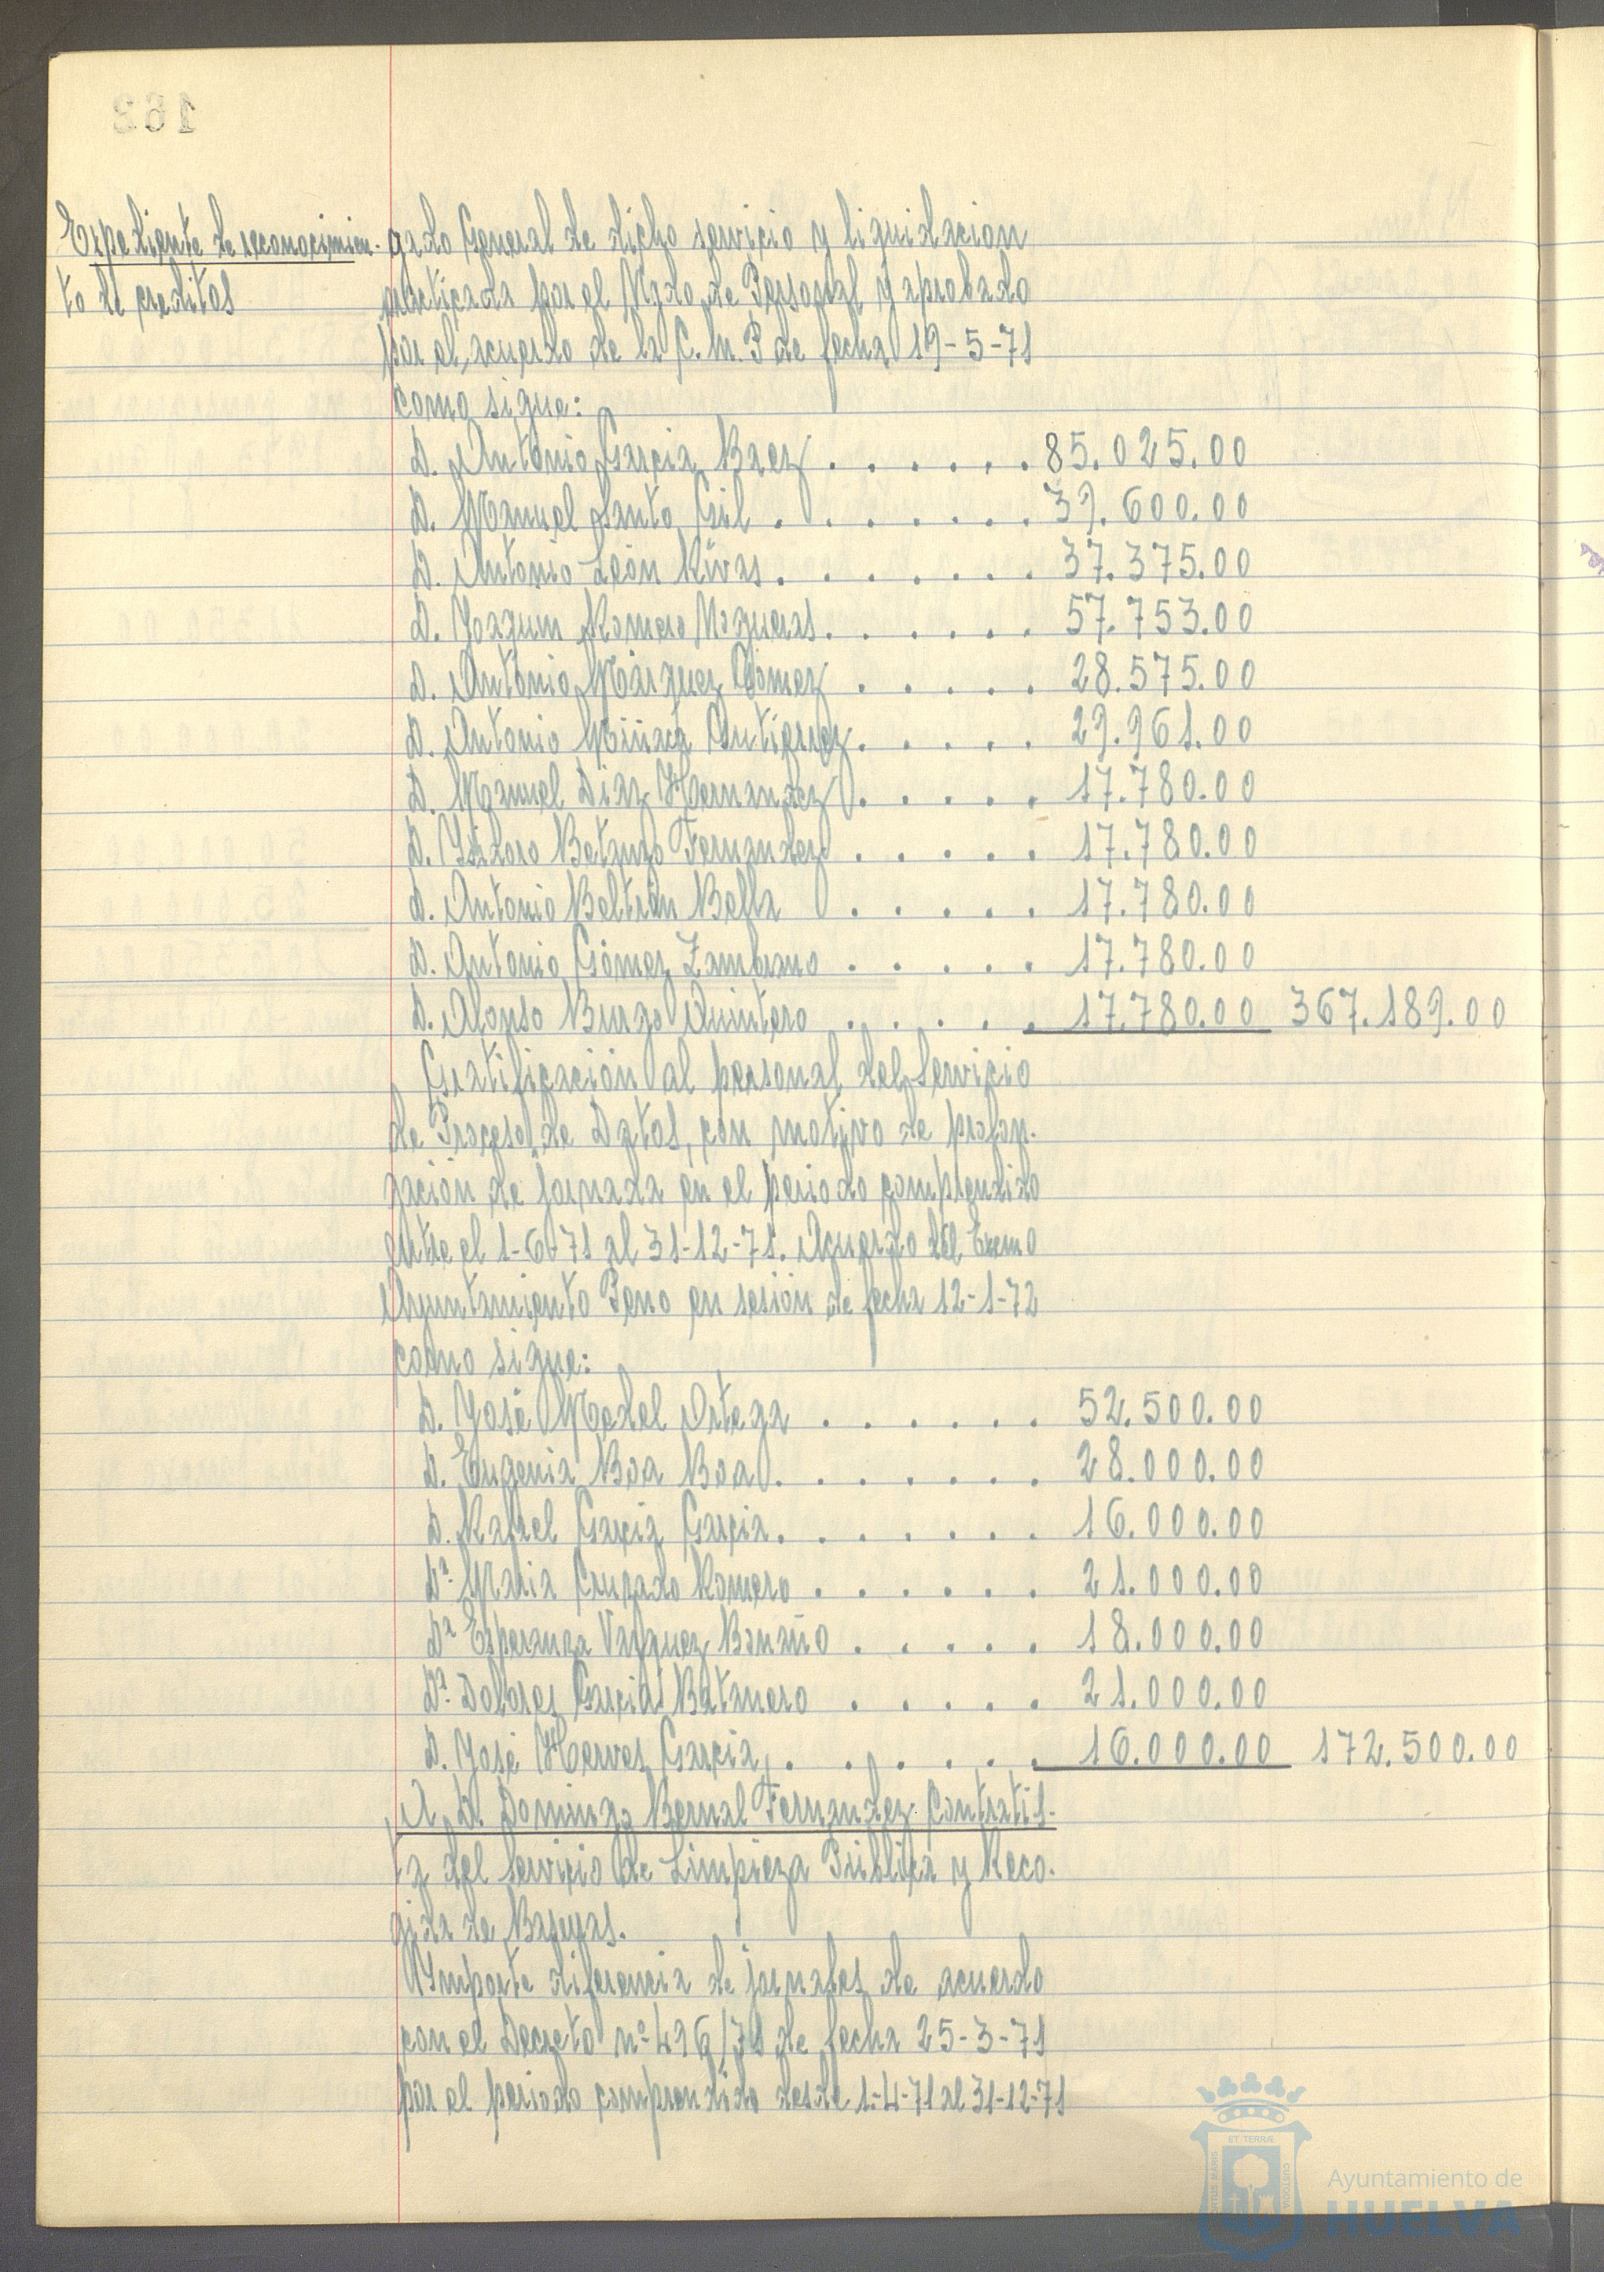 Expediente de reconocimien-
to de creditos
gado General de dicho servicio y liquidacion
practicada por el Ngdo. de Personal y aprobado
por el acuerdo de la C.M.P de fecha 19-5-71
como sigue:
D. Antonio Garcia Baez . . . . . . 85.025.00
D. Manuel Santo Gil . . . . . . . 39.600.00
D. Antonio León Rivas . . . . . . . 37.375.00
D. Joaquin Romero Nogueras . . . . . . 57.753.00
D. Antonio Márquez Gomez . . . . . 28.575.00
D. Antonio Gutierrez . . . . . 29.961.00
D. Manuel Diaz Hernandez . . . . . 17.780.00
D. Ysidoro Betanzo Fernandez . . . . . 17.780.00
D. Antonio Beltrán Bella . . . . . 17.780.00
D. Antonio Gómez Zambrano . . . . . 17.780.00
D. Alonso Burgo Quintero . . . . . 17.780.00 367.189.00
Gratificación al personal del Servicio
de Proceso de Datos, con motivo de prolon-
gación de jornada en el periodo comprendido
entre el 1-6-71 al 31-12-71. Acuerdo del Excmo
Ayuntamiento Peno en sesión de fecha 12-1-72
como sigue:
D. José Medel Ortega . . . . . . 52.500.00
D. Eugenia Boa Boa . . . . . . . 28.000.00
D. Rafael Garcia Garcia . . . . . . . 16.000.00
Dª. Maria Cruzado Romero . . . . . . 21.000.00
Dª Esperanza Vazquez Bonaño . . . . . 18.000.00
Dª. Dolores Garcia Batanero . . . . . 21.000.00
D. José Herves Garcia . . . . . . . 16.000.00 172.500.00
A D. Domingo Bernal Fernandez Contratis-
ta del Servicio de Limpieza Pública y Reco-
gida de Basuras.
Ymporte diferencia de jornales de acuerdo
con el Decreto nº 496/71 de fecha 25-3-71
por el periodo comprendido desde 1-4-71 al 31-12-71
ET TERRÆ
Ayuntamiento de
HUELVA